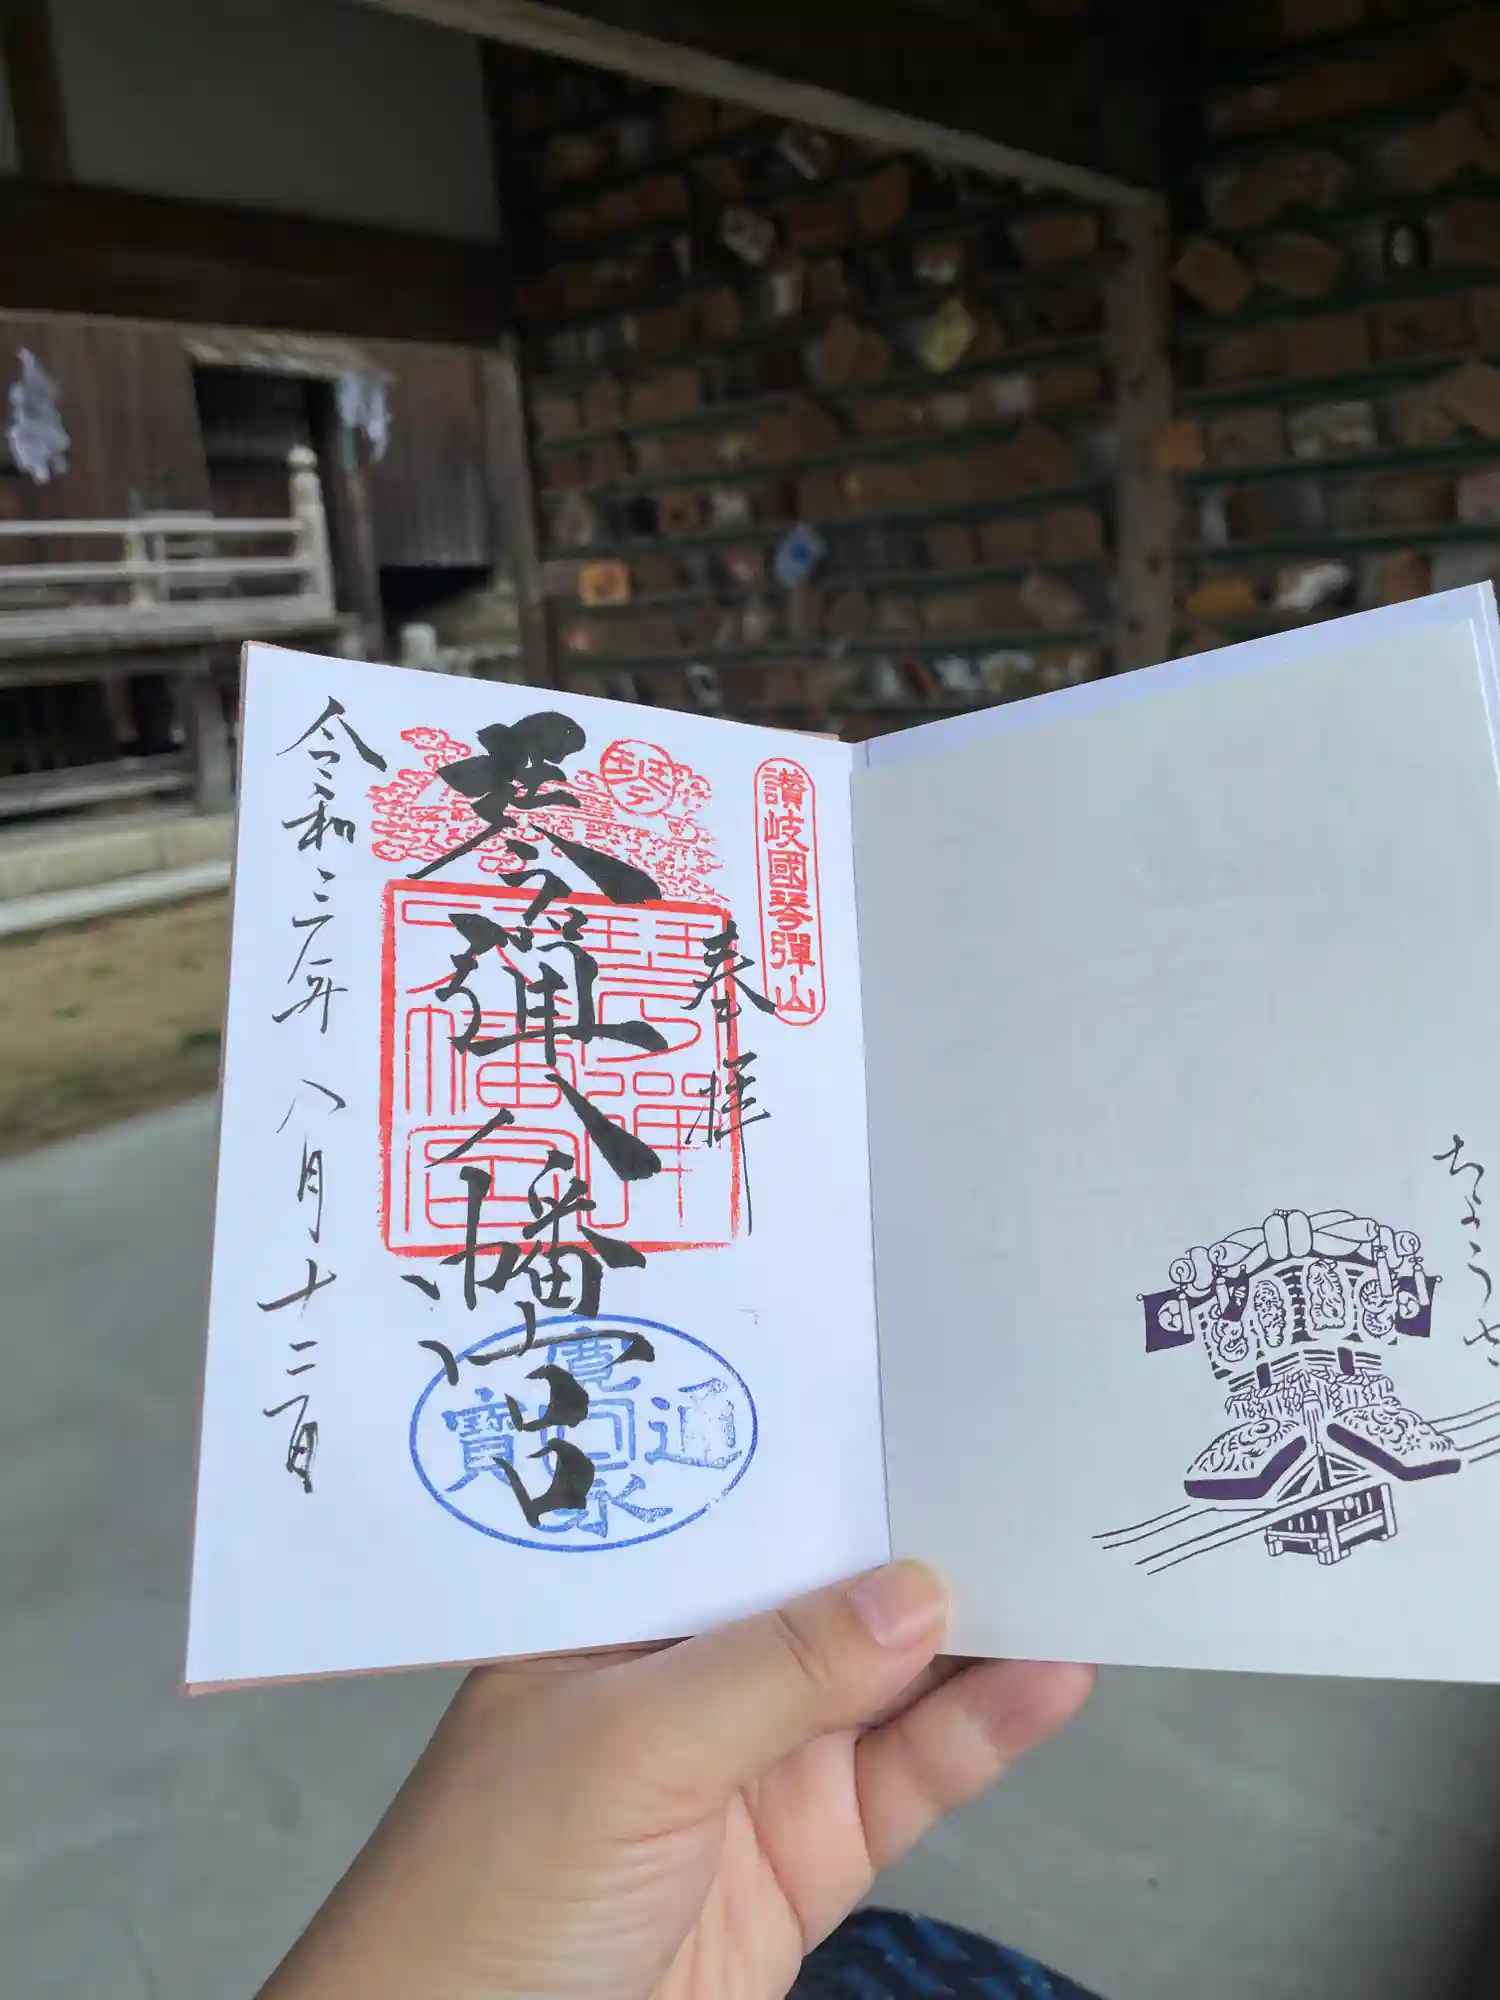 讃岐國琴彈山
奉拝
琴彈八幡宮
琴彈
八幡宮
寛永通寳
令和三年八月十二日
ちょうさ